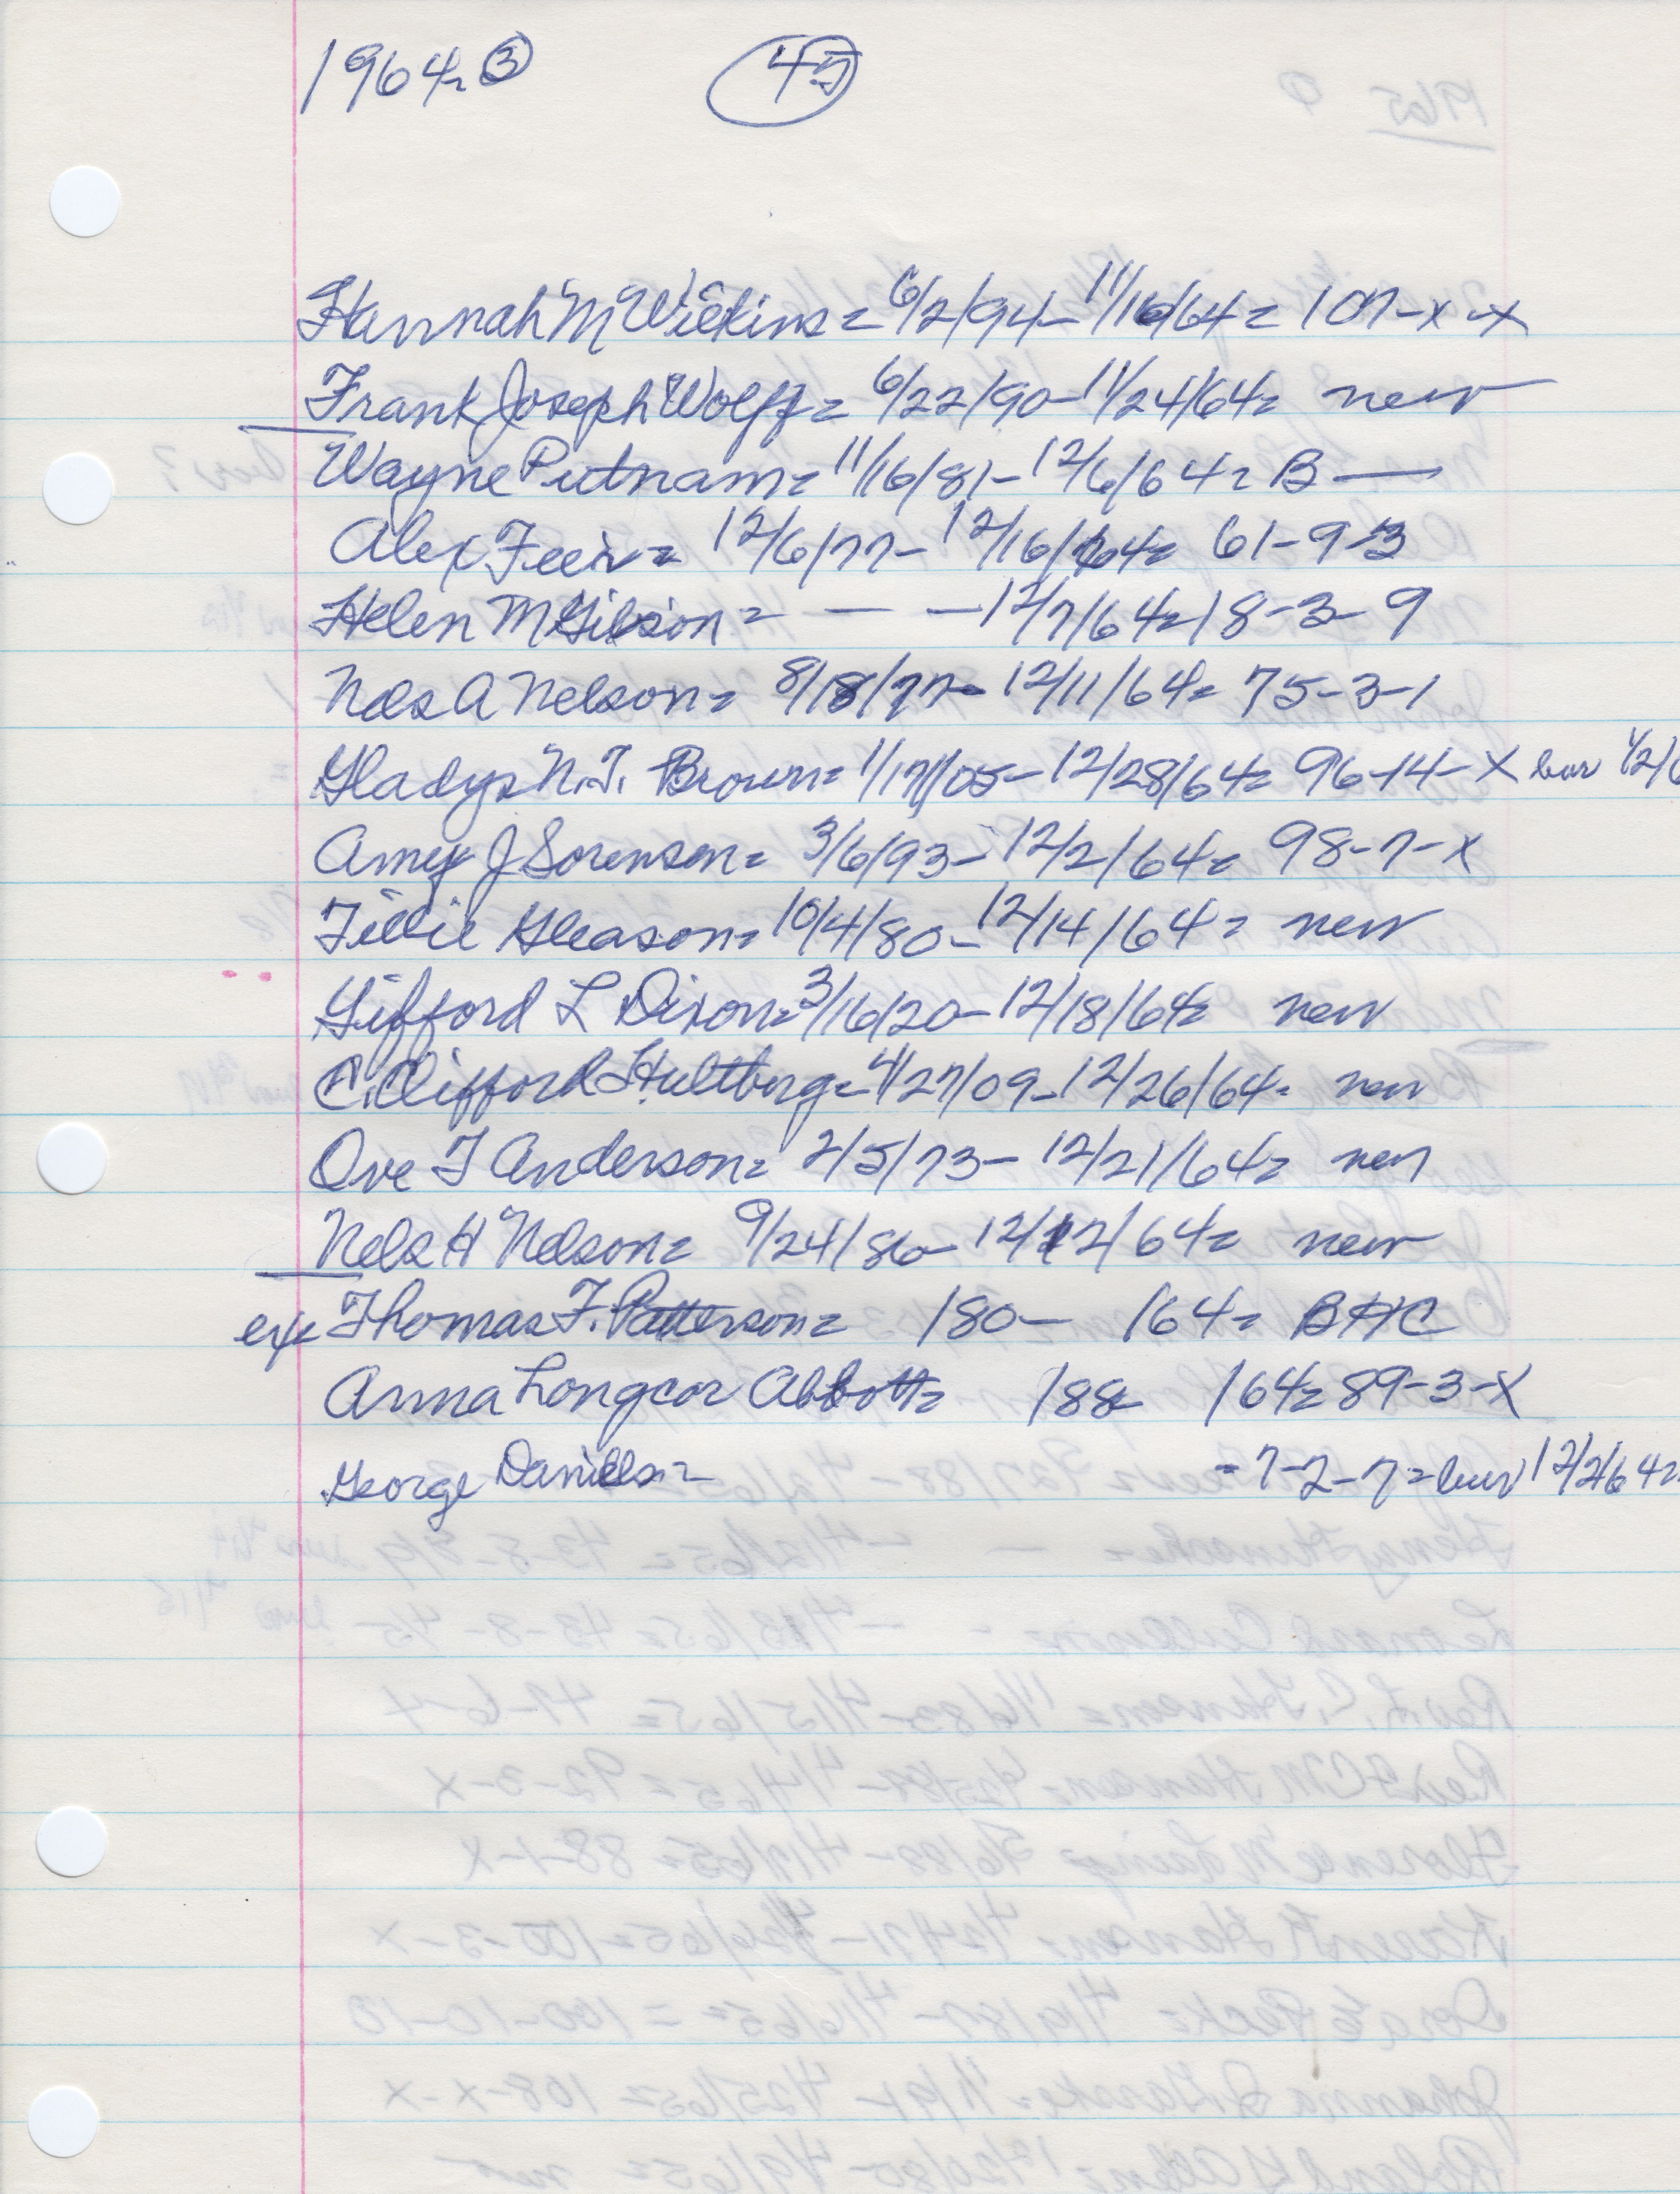 1964= ③ 45
Hannah M Wilkins = 6/2/94 - 11/16/64 = 107-x-x
Frank Joseph Wolff = 6/22/90 - 11/24/64 = new
Wayne Putnam = 11/16/81 - 12/6/64 = B —
Alex Feir = 12/6/77 - 12/16/64 = 61-9-3
Helen M Gibson = — — — 12/7/64 = 18-3-9
Nels A Nelson = 8/18/77 - 12/11/64 = 75-3-1
Gladys N.T. Brown = 1/17/05 - 12/28/64 = 96-14-X bur 1/2/6
Amey J Sorenson = 3/6/93 - 12/2/64 = 98-7-X
Tillie Gleason = 10/4/80 - 12/14/64 = new
Gifford L Dixon = 3/16/20 - 12/18/64 = new
C. Clifford Hultberg = 4/27/09 - 12/26/64 = new
Ove T Anderson = 2/5/73 - 12/21/64 = new
Nels H Nelson = 9/24/86 - 12/12/64 = new
Thomas F. Patterson = /80 - /64 = BHC
Anna Longcor Abbott = /88 /64 = 89-3-X
George Daniels = - 7-2-7 = bur 12/2/64 =